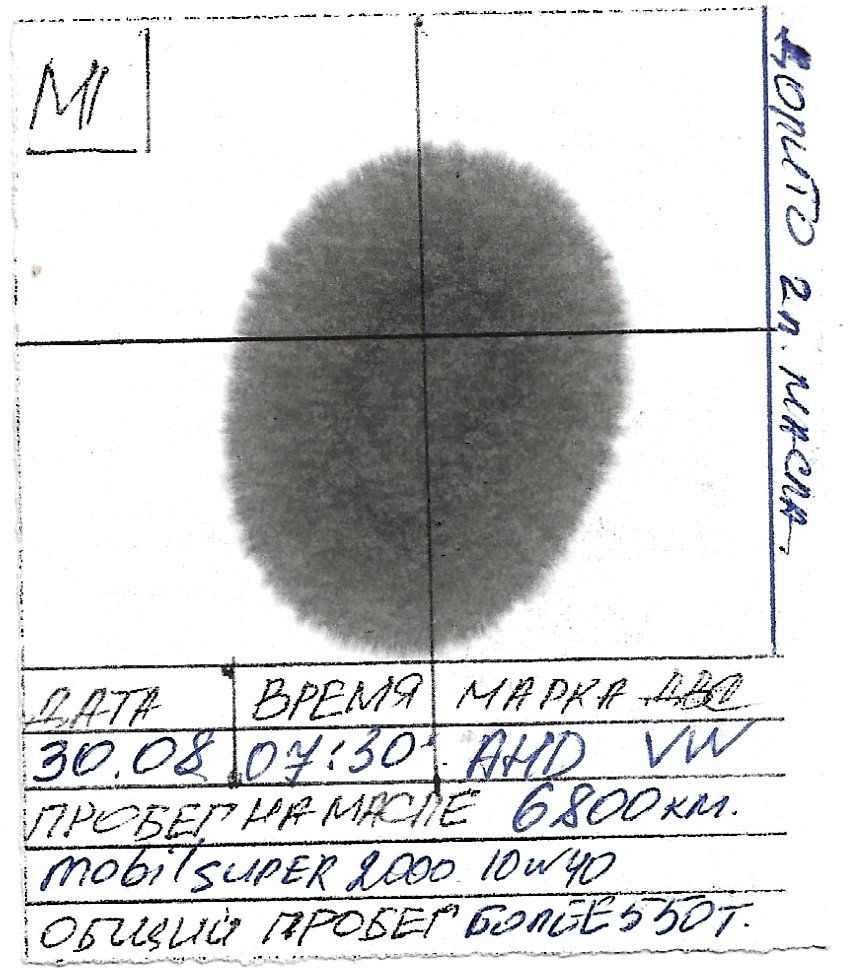 М1
ДОЛИТО 2л. МАСЛА.
ДАТА ВРЕМЯ МАРКА ДВС
30.08 07:30 AHD VW
ПРОБЕГ НА МАСЛЕ 6800км.
mobil SUPER 2000 10w40
ОБЩИЙ ПРОБЕГ БОЛЕЕ 550т.